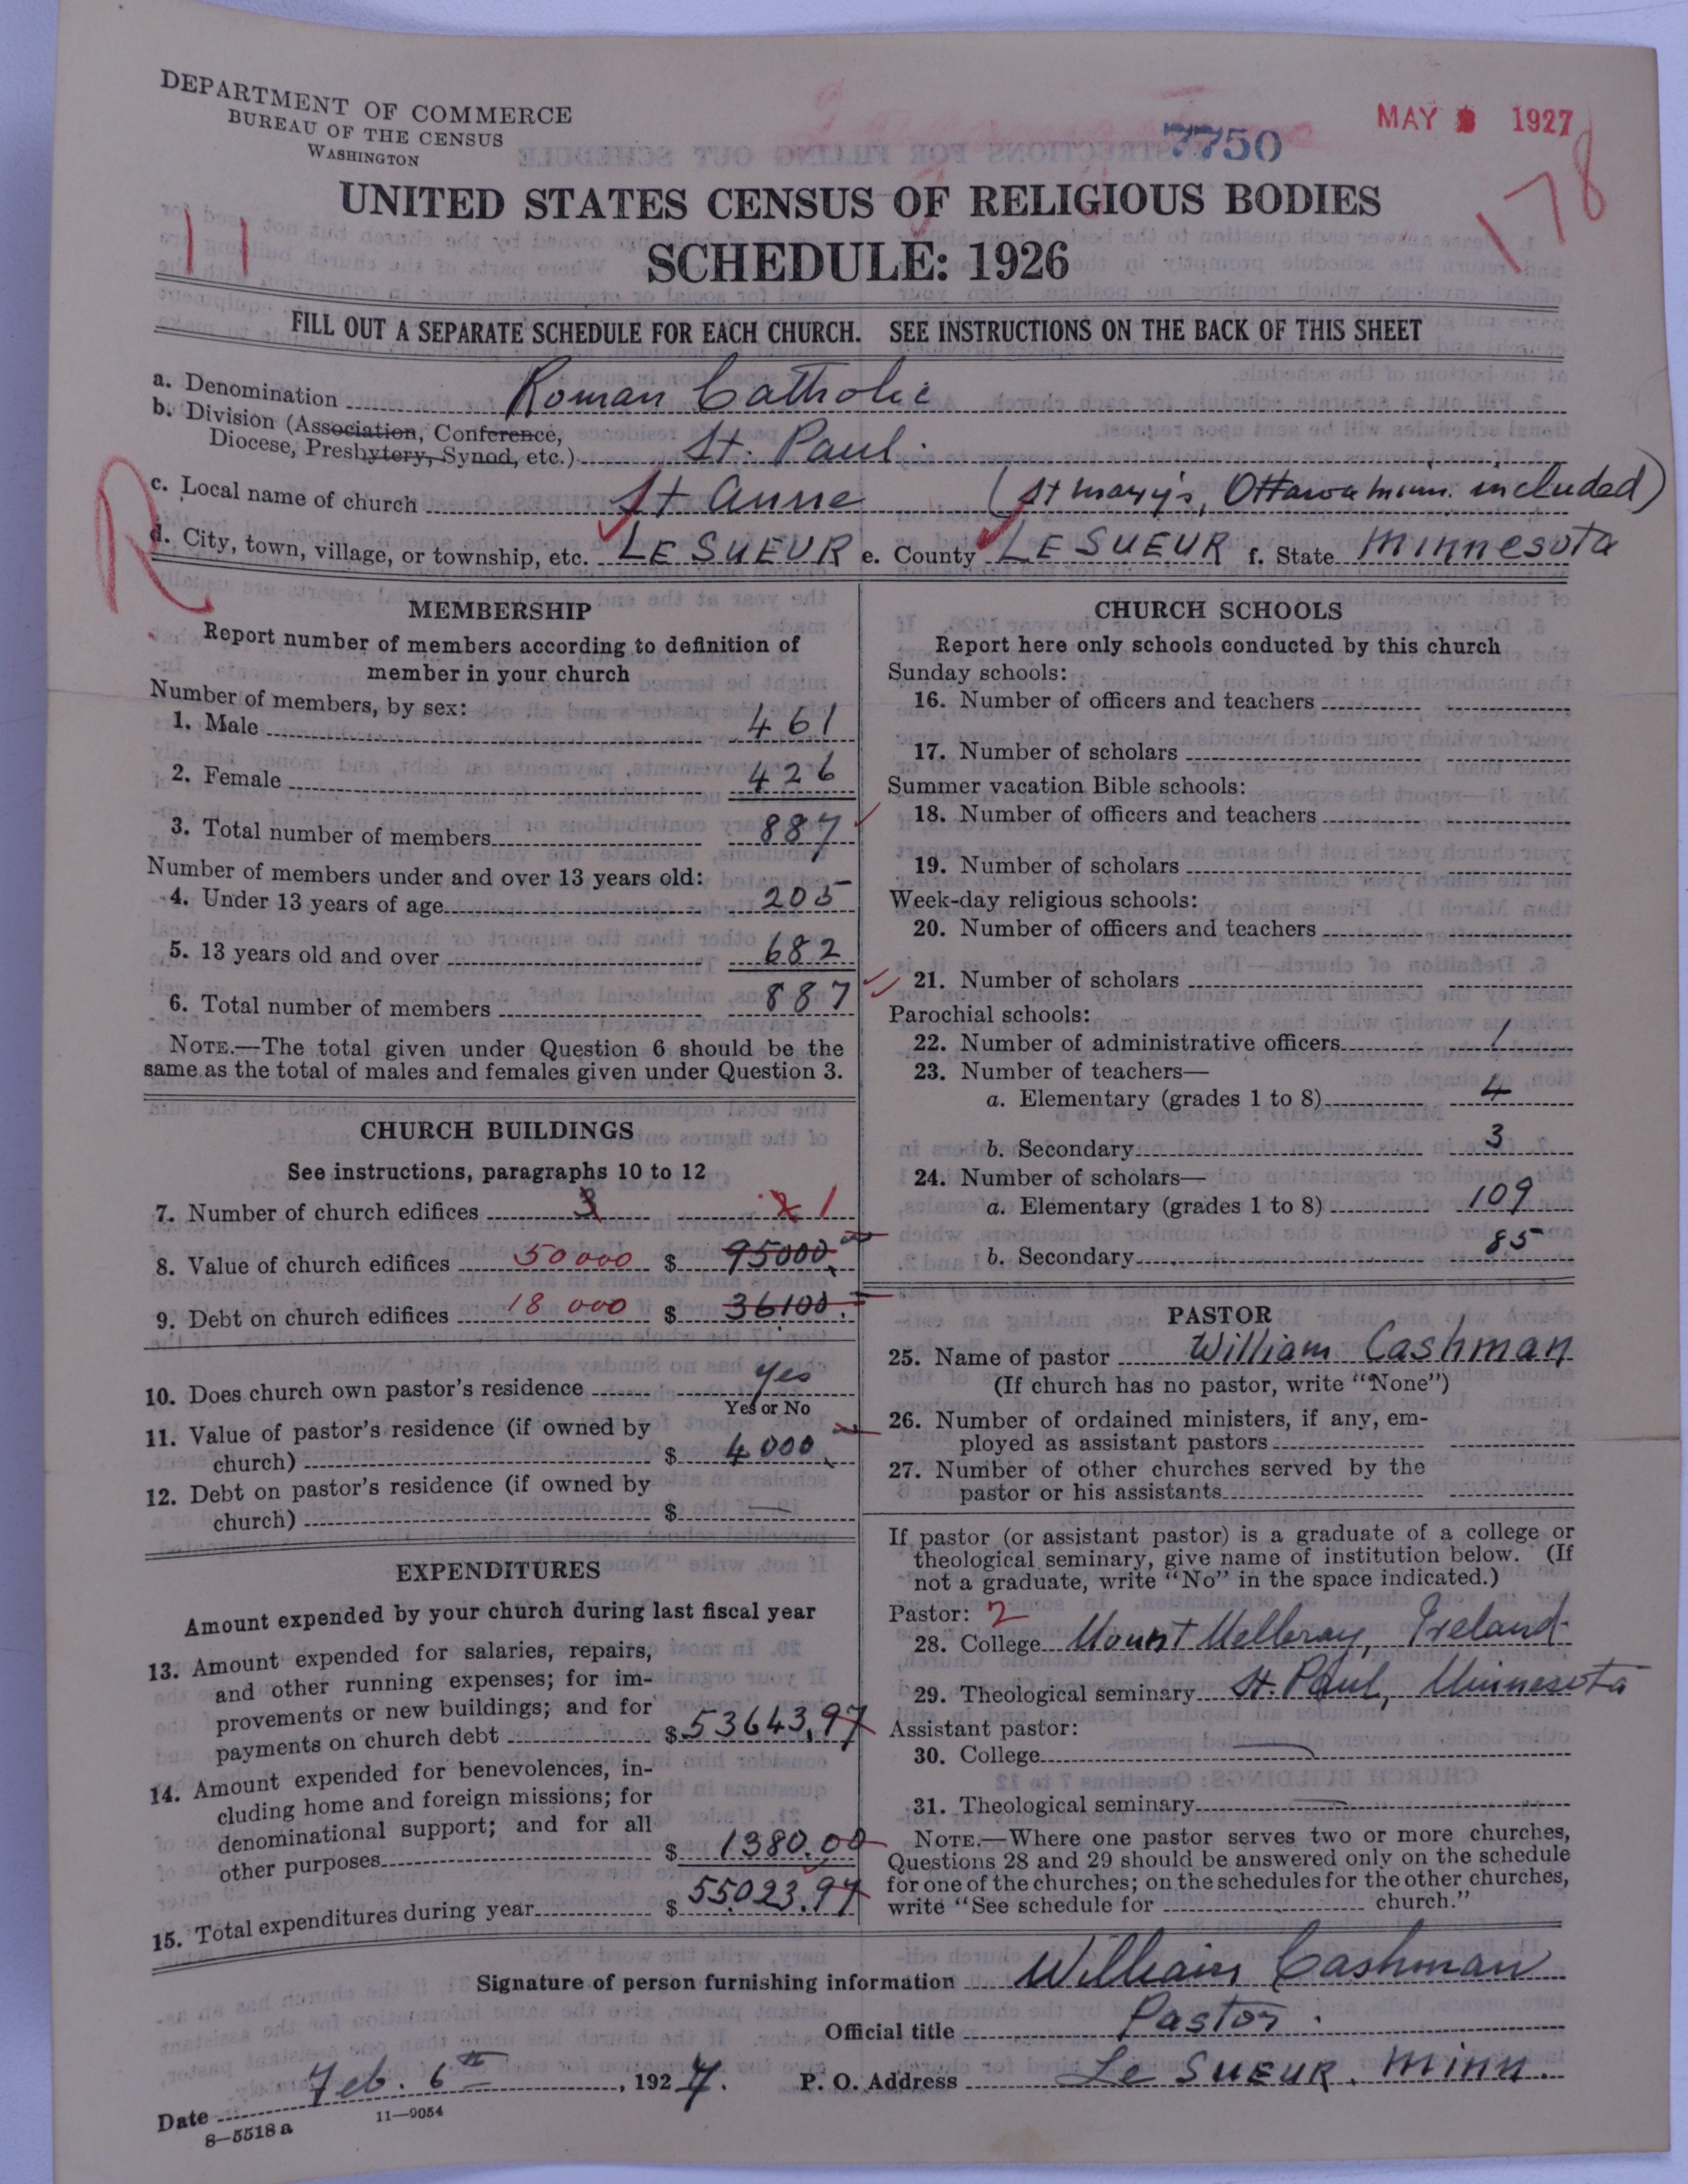 DEPARTMENT OF COMMERCE
BUREAU OF THE CENSUS
WASHINGTON
7750
MAY 1927
178
11
UNITED STATES CENSUS OF RELIGIOUS BODIES
SCHEDULE: 1926
FILL OUT A SEPARATE SCHEDULE FOR EACH CHURCH. SEE INSTRUCTIONS ON THE BACK OF THIS SHEET
a. Denomination Roman Catholic
b. Division (Association, Conference,
Diocese, Presbytery, Synod, etc.) St. Paul.
R
c. Local name of church St Anne (St Mary's, Ottawa Minn. included)
d. City, town, village, or township, etc. LE SUEUR e. County LE SUEUR f. State Minnesota
MEMBERSHIP
Report number of members according to definition of
member in your church
Number of members, by sex:
1. Male 461
2. Female 426
3. Total number of members 887
Number of members under and over 13 years old:
4. Under 13 years of age 205
5. 13 years old and over 682
6. Total number of members 887
NOTE.—The total given under Question 6 should be the
same as the total of males and females given under Question 3.
CHURCH BUILDINGS
See instructions, paragraphs 10 to 12
7. Number of church edifices 3 2 1
8. Value of church edifices 50000 $ 95000
9. Debt on church edifices 18 000 $ 36100
10. Does church own pastor's residence Yes
Yes or No
11. Value of pastor's residence (if owned by
church) $ 4000
12. Debt on pastor's residence (if owned by
church) $ —
EXPENDITURES
Amount expended by your church during last fiscal year
13. Amount expended for salaries, repairs,
and other running expenses; for im-
provements or new buildings; and for
payments on church debt $ 53643.97
14. Amount expended for benevolences, in-
cluding home and foreign missions; for
denominational support; and for all
other purposes $ 1380.00
15. Total expenditures during year $ 55023.97
CHURCH SCHOOLS
Report here only schools conducted by this church
Sunday schools:
16. Number of officers and teachers
17. Number of scholars
Summer vacation Bible schools:
18. Number of officers and teachers
19. Number of scholars
Week-day religious schools:
20. Number of officers and teachers
21. Number of scholars
Parochial schools:
22. Number of administrative officers 1
23. Number of teachers—
a. Elementary (grades 1 to 8) 4
b. Secondary 3
24. Number of scholars—
a. Elementary (grades 1 to 8) 109
b. Secondary 85
PASTOR
25. Name of pastor William Cashman
(If church has no pastor, write "None")
26. Number of ordained ministers, if any, em-
ployed as assistant pastors
27. Number of other churches served by the
pastor or his assistants
If pastor (or assistant pastor) is a graduate of a college or
theological seminary, give name of institution below. (If
not a graduate, write "No" in the space indicated.)
Pastor: 2
28. College Mount Melleray, Ireland.
29. Theological seminary St. Paul, Minnesota
Assistant pastor:
30. College —
31. Theological seminary —
NOTE.—Where one pastor serves two or more churches,
Questions 28 and 29 should be answered only on the schedule
for one of the churches; on the schedules for the other churches,
write "See schedule for church."
Signature of person furnishing information William Cashman
Official title Pastor.
Date Feb. 6th, 1927. P. O. Address Le SUEUR. Minn.
8—5518 a 11—9054